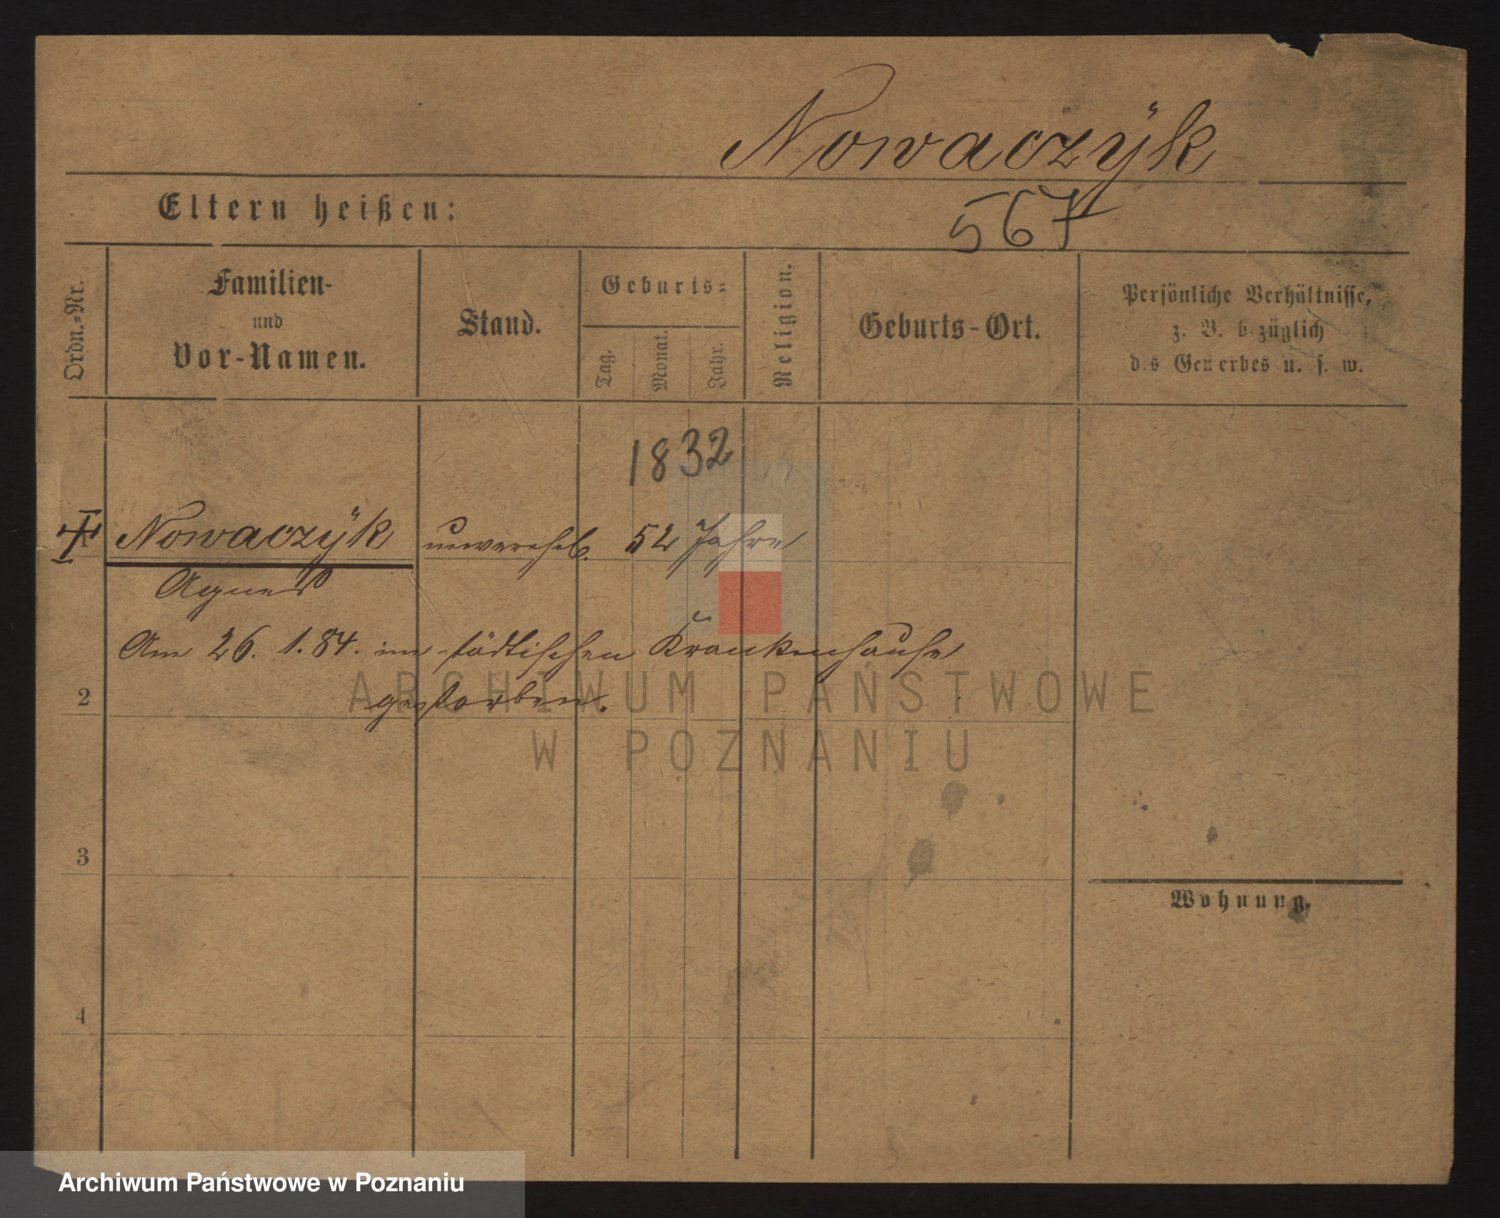 Nowaczÿk
Eltern heißen:
567
Ordn.-Nr.
Familien-
und
Vor-Namen.
Stand.
Geburts-
Tag.
Monat.
Jahr.
Religion.
Geburts-Ort.
Persönliche Verhältnisse,
z. B. bezüglich
des Gewerbes u. s. w.
1832
Nowaczÿk unvereh. 52 Jahre
Agnes
Am 26. 1. 84. im städtischen Krankenhause
gestorben.
2
3
4
Wohnung.
ARCHIWUM PAŃSTWOWE
W POZNANIU
Archiwum Państwowe w Poznaniu